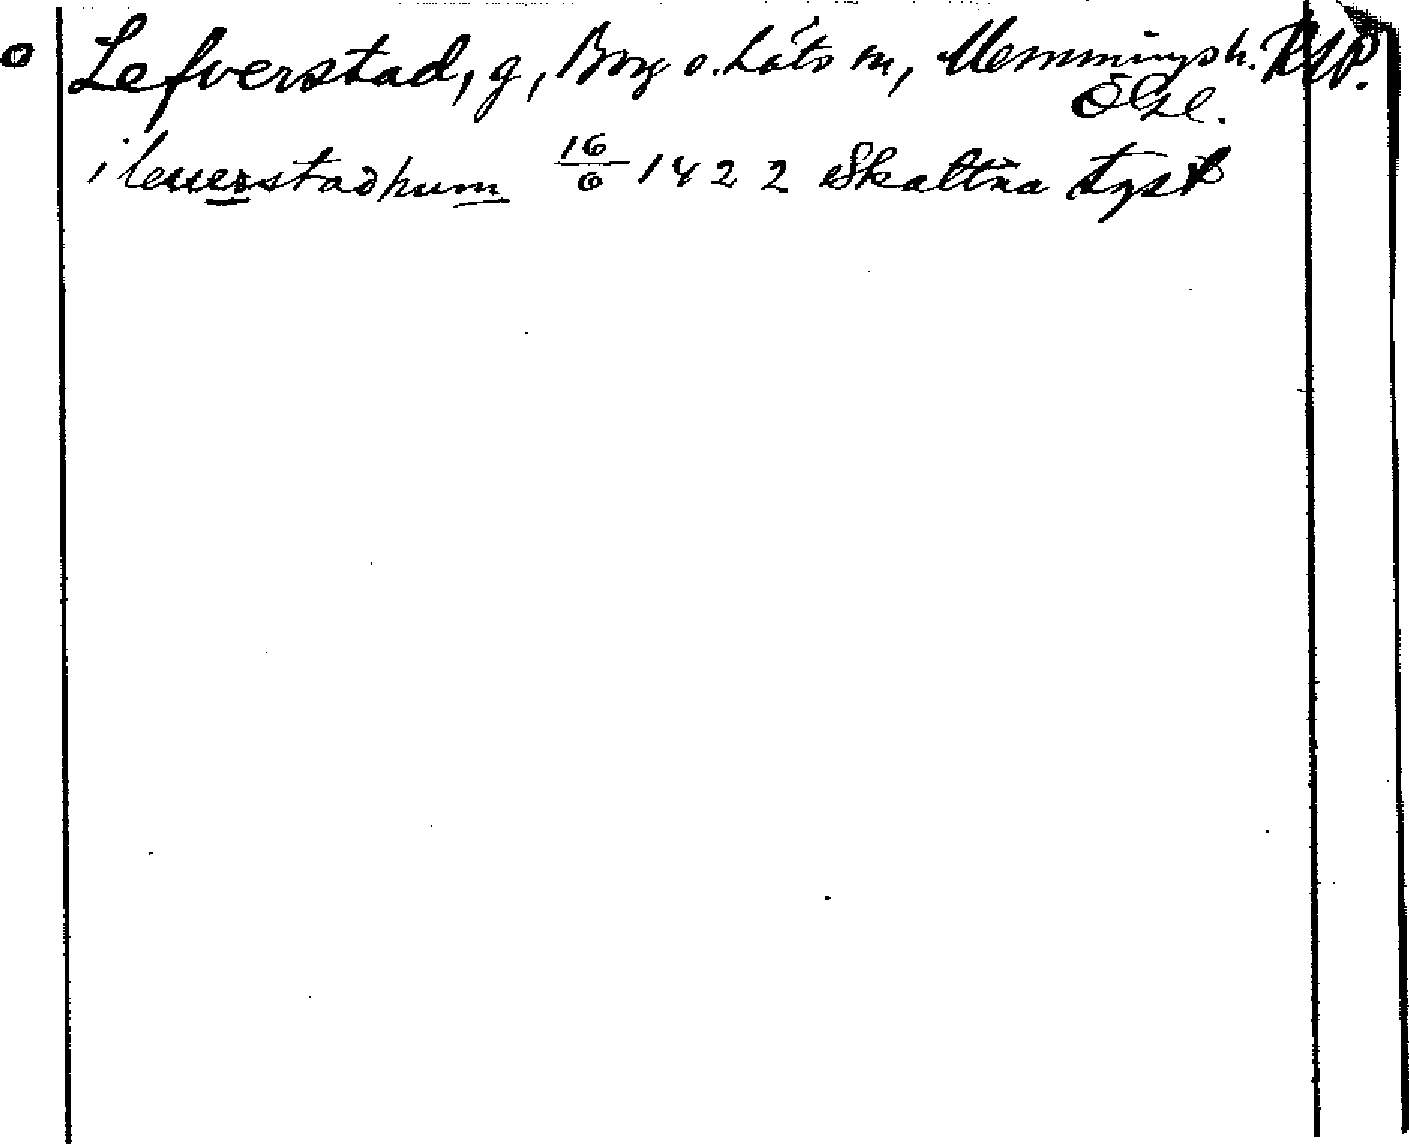 o Lefverstad, g, Borg o. Löts m, Memmings h. RAP.
Ögl.
i leuerstadhum 16/6 1422 Skältna